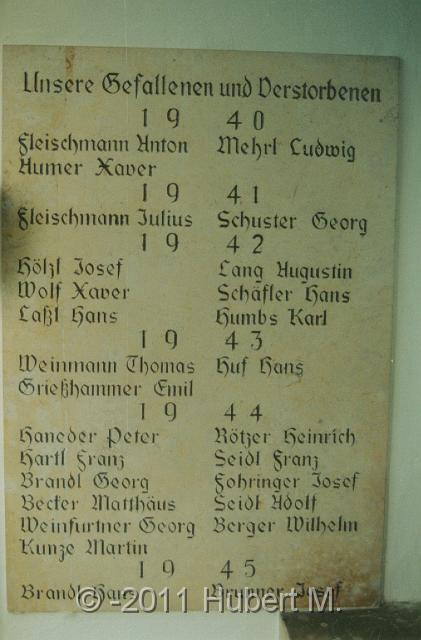 Unsere Gefallenen und Verstorbenen
19 40
Fleischmann Anton Mehrl Ludwig
Aumer Xaver
19 41
Fleischmann Julius Schuster Georg
19 42
Hölzl Josef Lang Augustin
Wolf Xaver Schäfler Hans
Laßl Hans Humbs Karl
19 43
Weinmann Thomas Huf Hans
Grießhammer Emil
19 44
Haneder Peter Rötzer Heinrich
Hartl Franz Seidl Franz
Brandl Georg Fohringer Josef
Becker Matthäus Seidl Adolf
Weinfurtner Georg Berger Wilhelm
Kunze Martin
19 45
Brandl Hans Brunner Josef
© -2011 Hubert M.